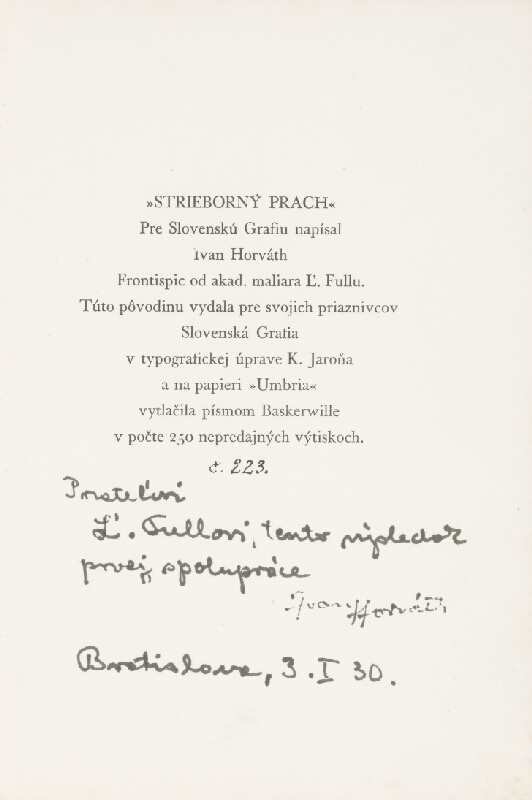 »STRIEBORNÝ PRACH«
Pre Slovenskú Grafiu napísal
Ivan Horváth
Frontispic od akad. maliara Ľ. Fullu.
Túto pôvodinu vydala pre svojich priaznivcov
Slovenská Grafia
v typografickej úprave K. Jaroňa
a na papieri »Umbria«
vytlačila písmom Baskerwille
v počte 250 nepredajných výtiskoch.
č. 223.
Priateľovi
Ľ. Fullovi, tento výsledok
prvej spolupráce
Ivan Horváth
Bratislava, 3. I 30.